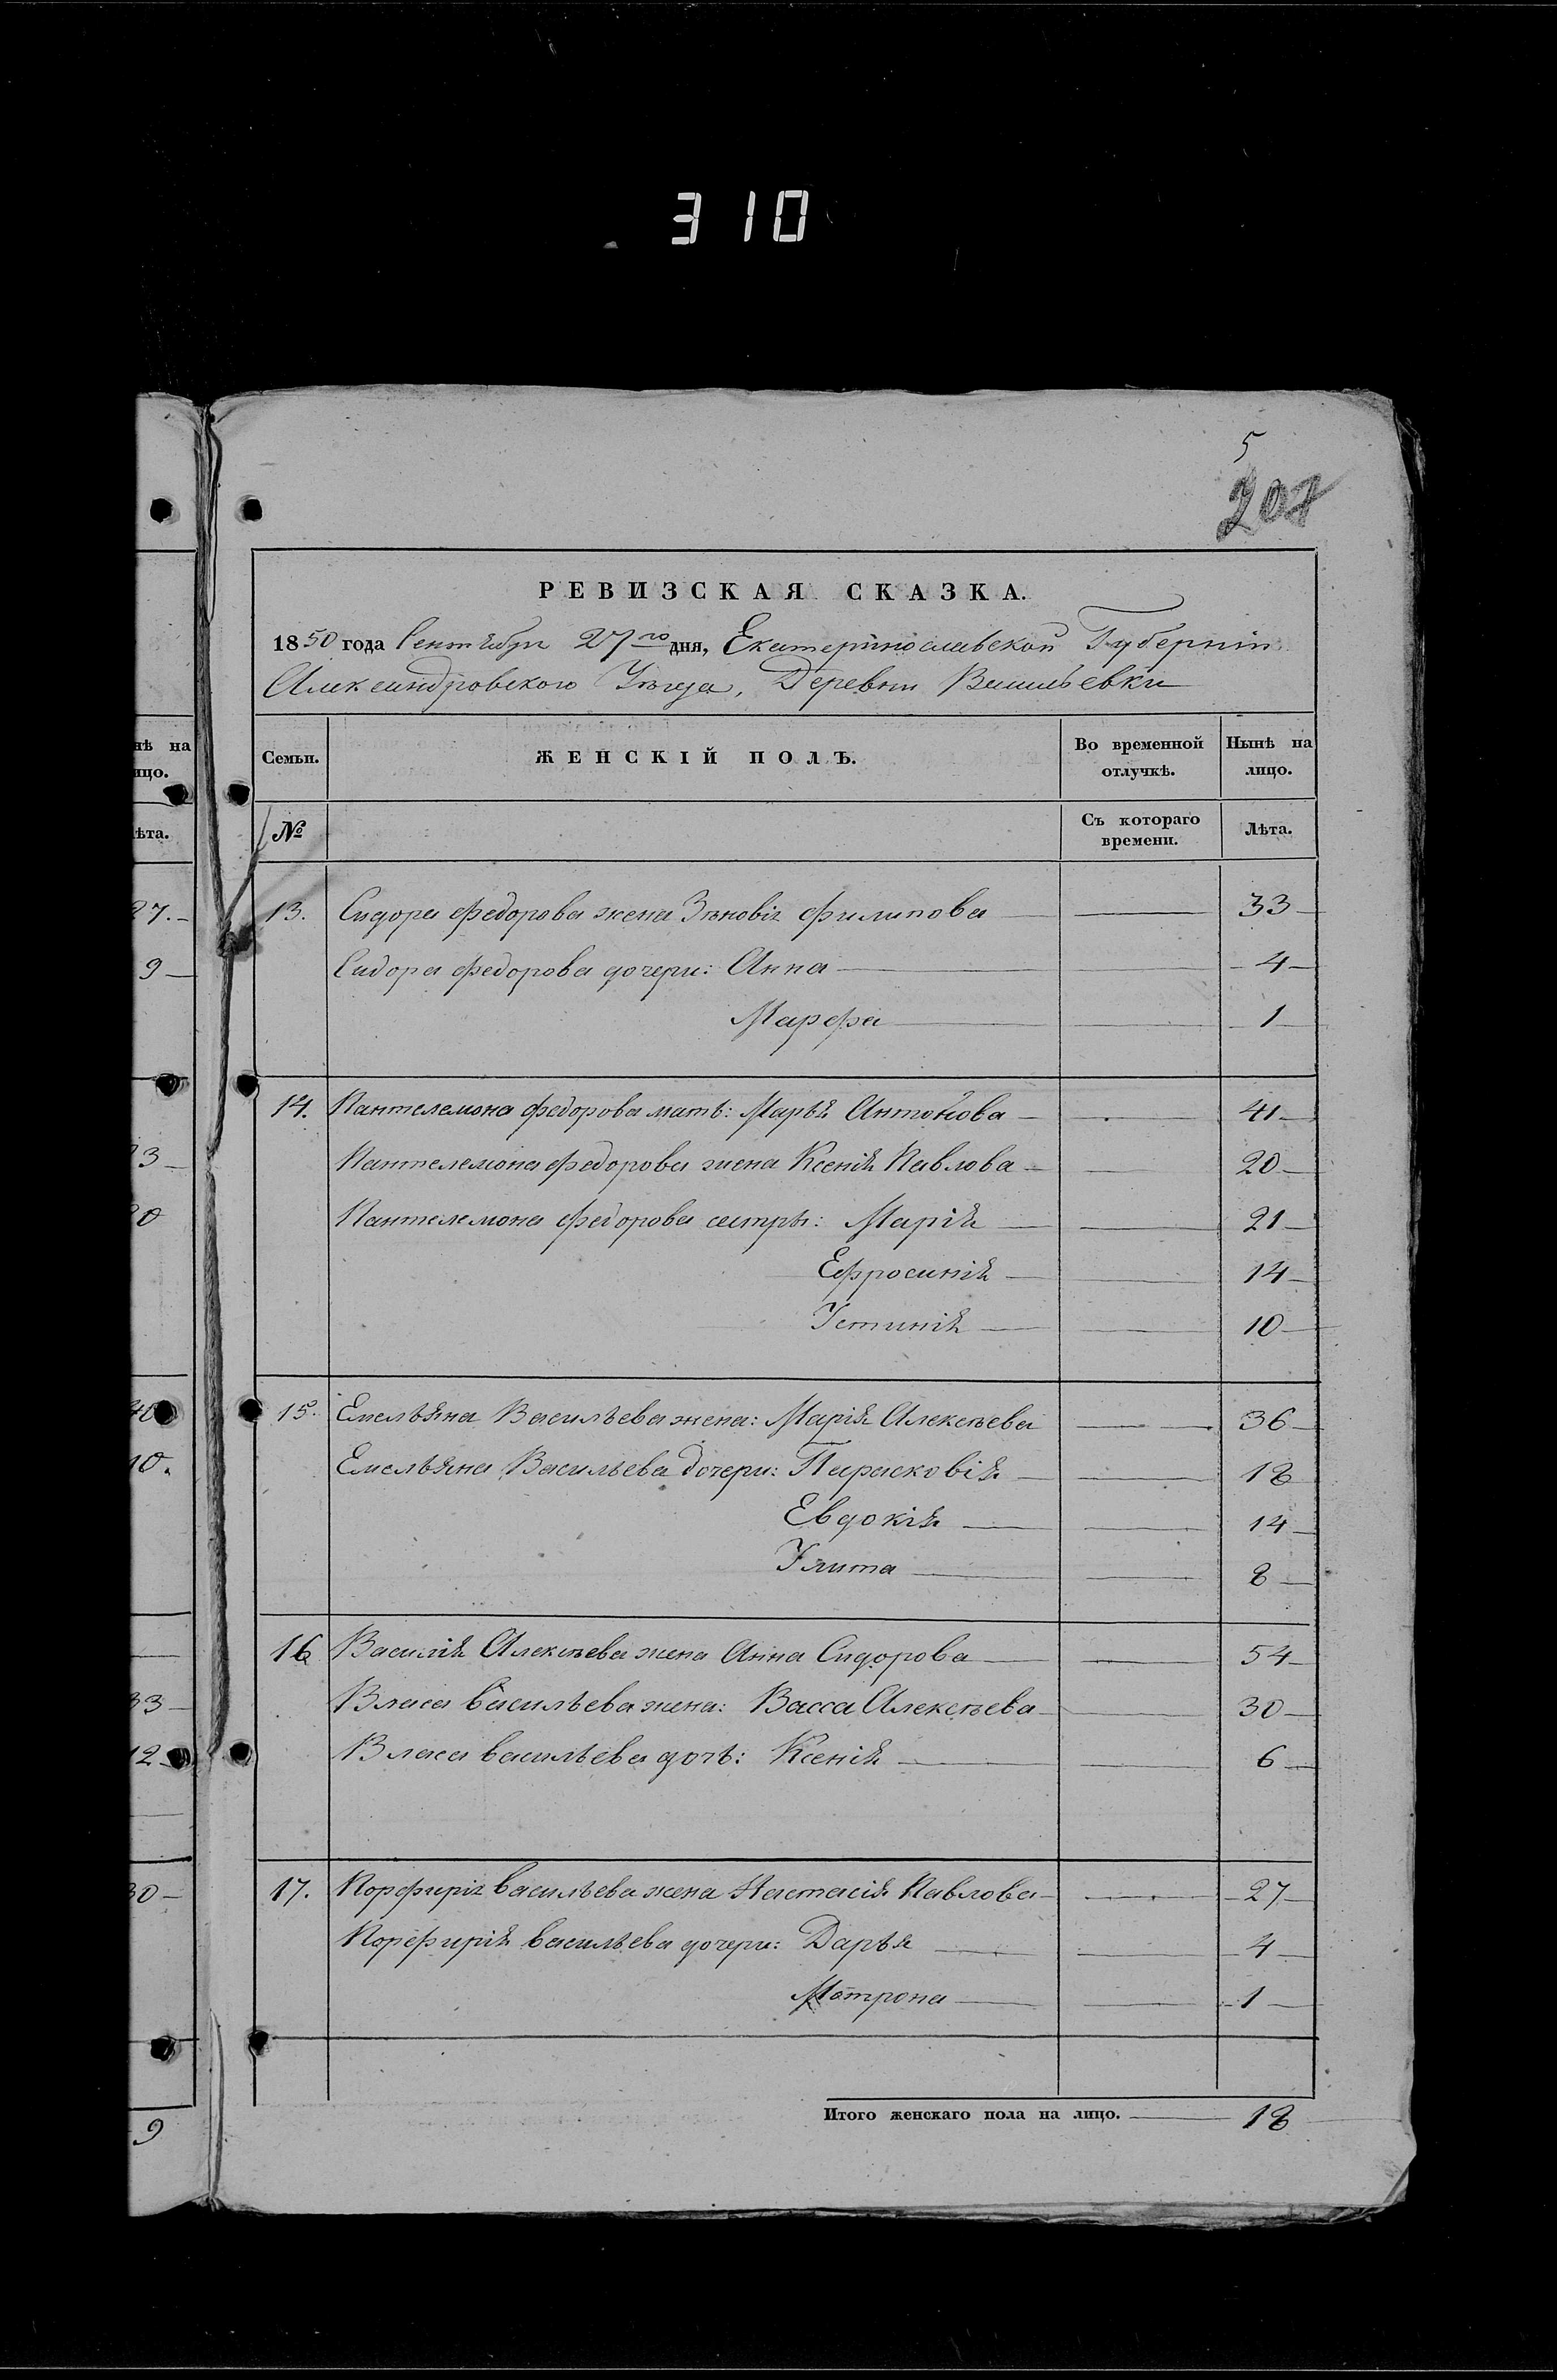 310
5
207
РЕВИЗСКАЯ СКАЗКА.
1850 года Сентября 27го дня, Екатеринославской Губерніи
Александровского Уѣзда, Деревни Васильевки
нѣ на
ицо.
ѣта.
Семьи.
ЖЕНСКІЙ ПОЛЪ.
Во временной отлучкѣ.
Нынѣ на лицо.
№
Съ котораго времени.
Лѣта.
13. Сидора Федорова жена Зѣновія Филипова 33
Сидора Федорова дочери: Анна 4
Марфа 1
14. Пантелемона Федорова мать: Марья Антонова 41
Пантелемона Федорова жена Ксенія Павлова 20
Пантелемона Федорова сестры: Марія 21
Ефросинія 14
Устинія 10
15. Емельяна Васильева жена: Марія Алексѣева 36
Емельяна Васильева дочери: Парасковія 18
Евдокія 14
Улита 8
16 Василія Алексѣева жена Анна Сидорова 54
Власа Васильева жена: Васса Алексѣева 30
Власа Васильева дочь: Ксенія 6
17. Порфирія Васильева жена Настасія Павлова 27
Порфирія Васильева дочери: Дарья 4
Мотрона 1
Итого женскаго пола на лицо. 18
27.
9
9